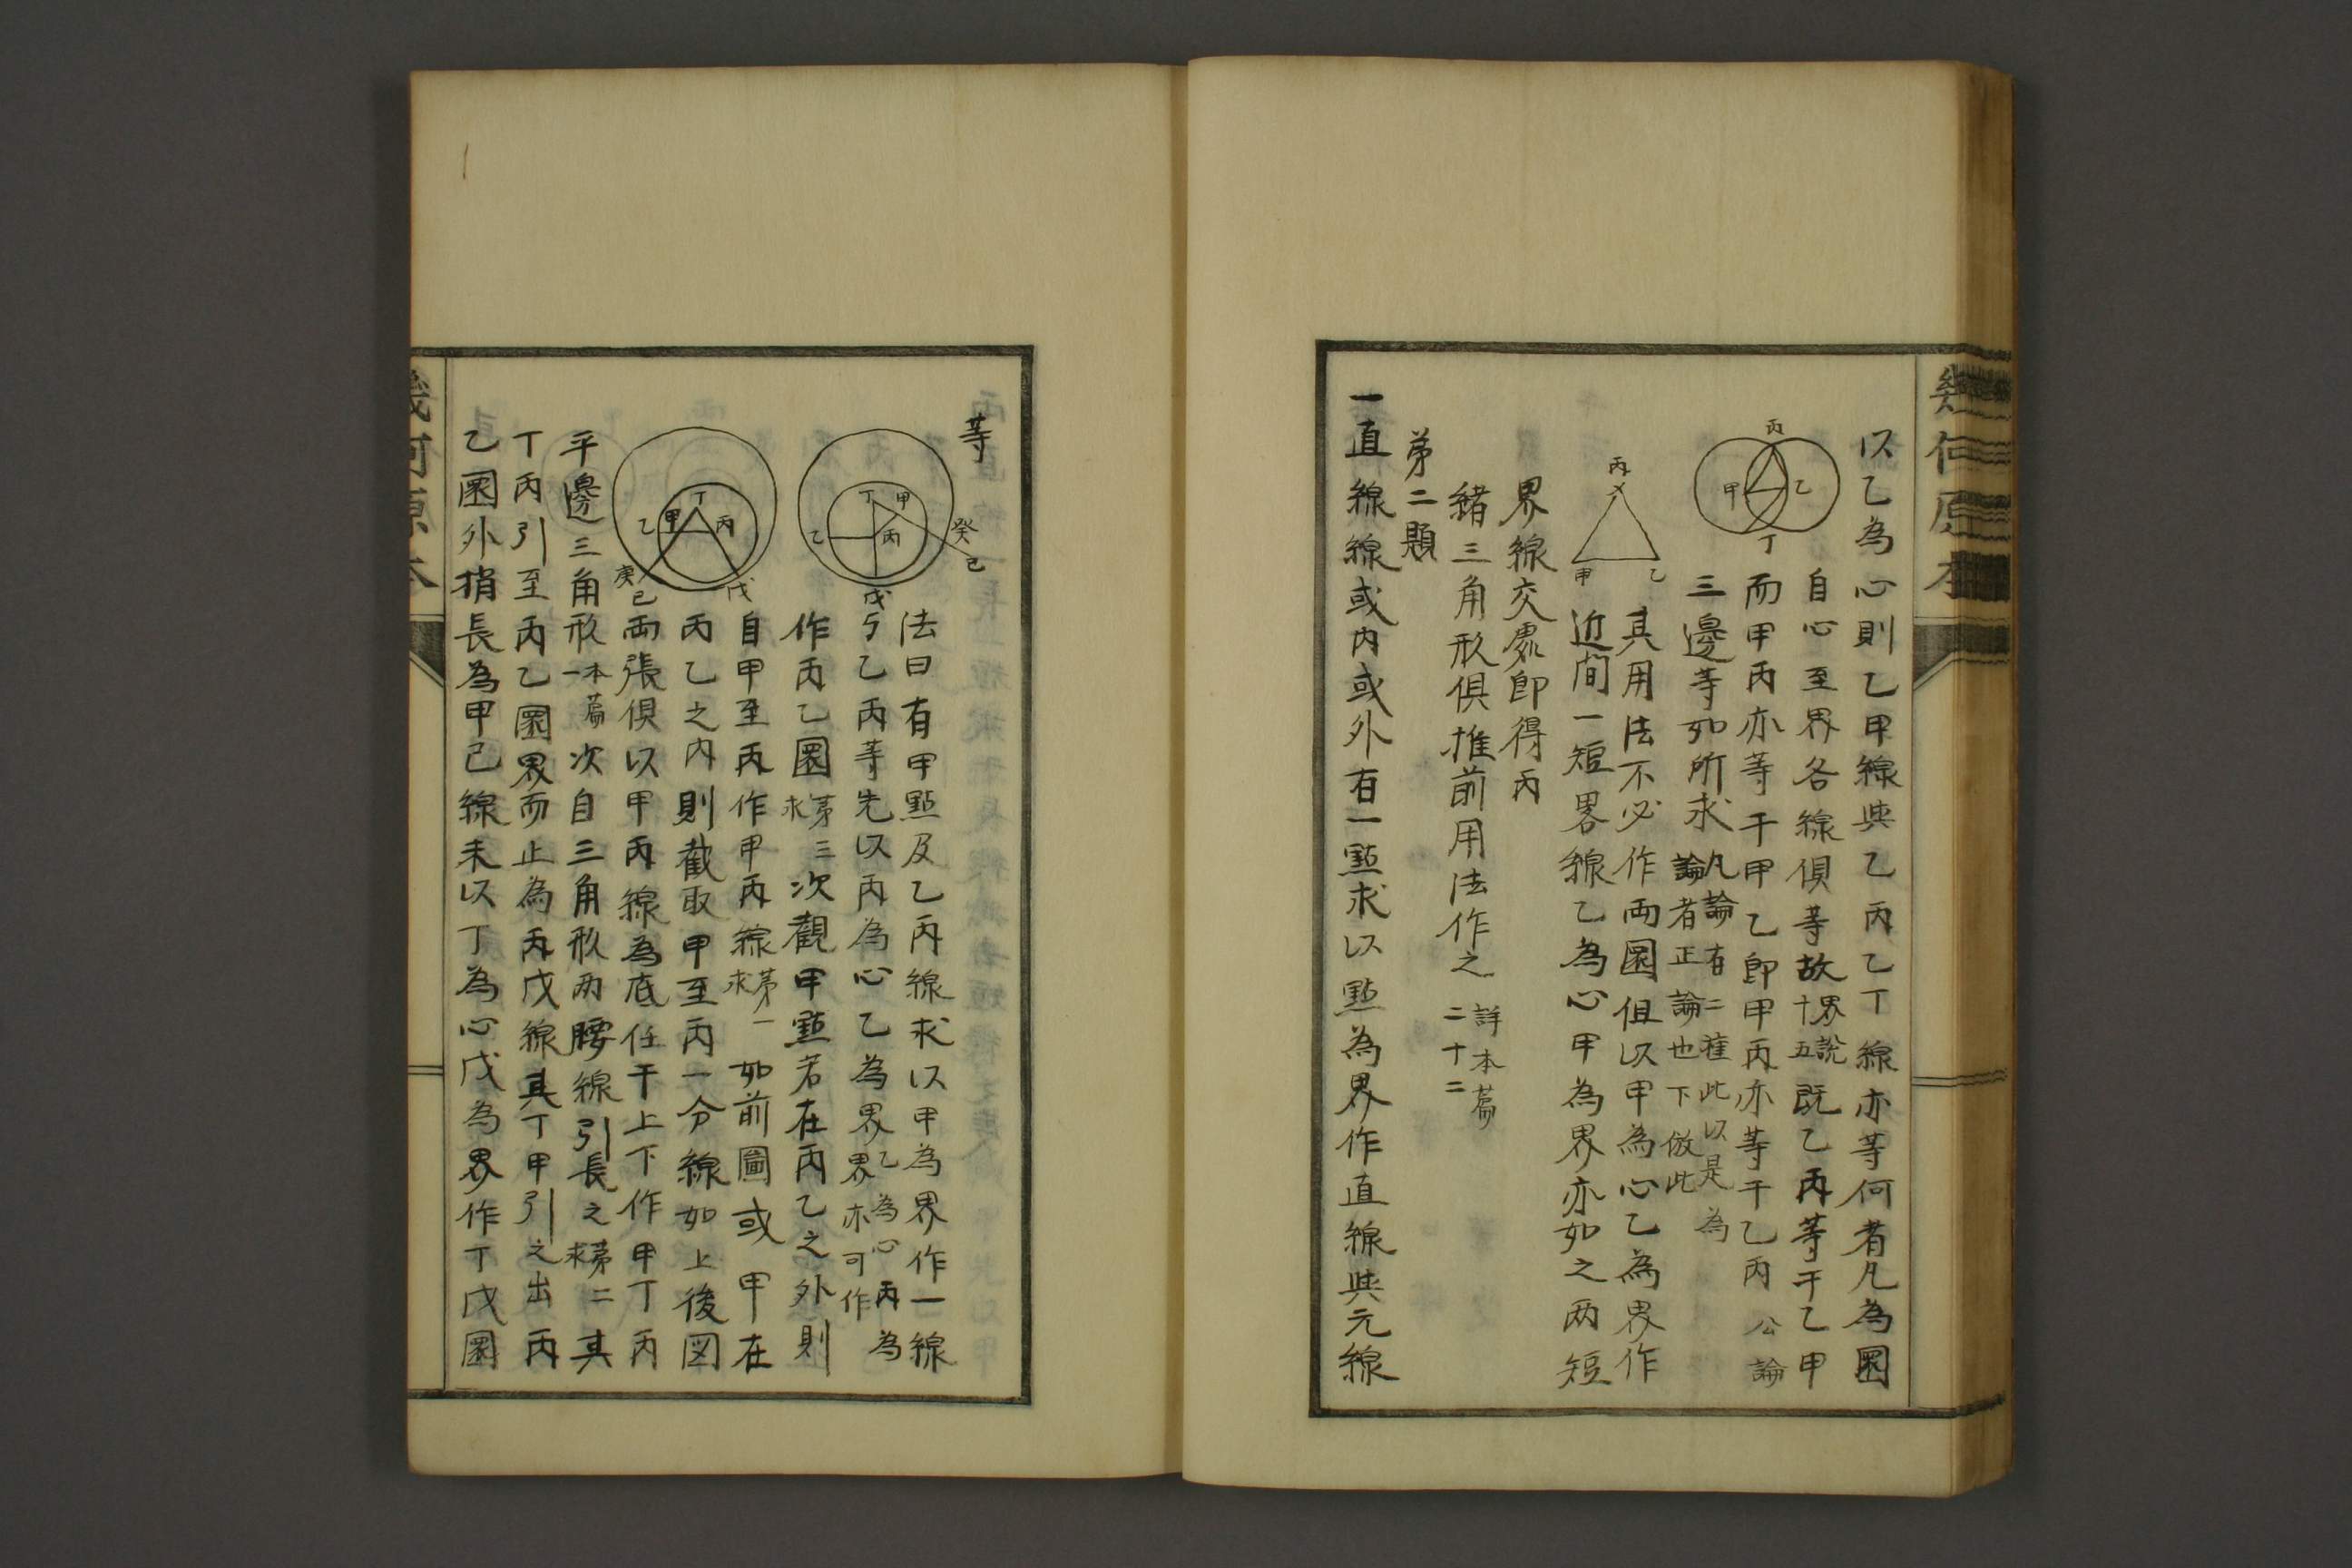 幾何原本
以乙為心則乙甲線與乙丙乙丁線亦等何者凡為圜
自心至界各線俱等故界說十五既乙丙等于乙甲
而甲丙亦等于甲乙即甲丙亦等于乙丙公論
三邊等如所求凡論有二種此以是為論者正論也下倣此
丙
甲
乙
丁
其用法不必作兩圜但以甲為心乙為界作
近間一短畧線乙為心甲為界亦如之两短
丙
甲
乙
界線交處即得丙
緒三角形俱推前用法作之詳本篇二十二
第二題
一直線線或內或外有一點求以點為界作直線與元線
等
法曰有甲點及乙丙線求以甲為界作一線
与乙丙等先以丙為心乙為界乙為心丙為界亦可作
作丙乙圜第三求次觀甲點若在丙乙之外則
丁
甲
癸
乙
丙
己
戊
自甲至丙作甲丙線第一求如前圖或甲在
丙乙之內則截取甲至丙一分線如上後図
両張俱以甲丙線為底任于上下作甲丁丙
丁
甲
丙
乙
庚
己
戊
平邊三角形本篇一次自三角形两腰線引長之第二求其
丁丙引至丙乙圜界而止為丙戊線其丁甲引之出丙
乙圜外捎長為甲己線未以丁為心戊為界作丁戊圜
幾何原本